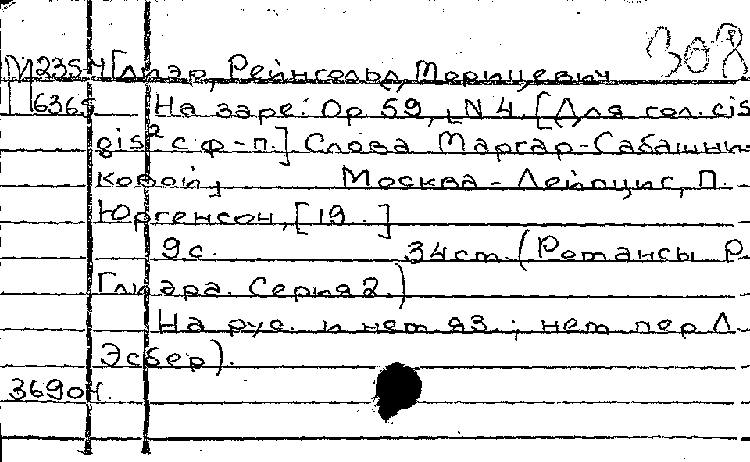 308
М235Н Глиэр, Рейнгольд Морицевич
П6365 На заре: Op 59, N 4. [Для гол. cis
gis² с ф-п.] Слова Маргар-Сабашни-
ковой, Москва-Лейпциг, П.
Юргенсон, [19..]
9 с. 34 см. (Романсы Р.
Глиэра. Серия 2.)
На рус. и нем яз.; нем пер Л.
Эсбер).
3690Н.